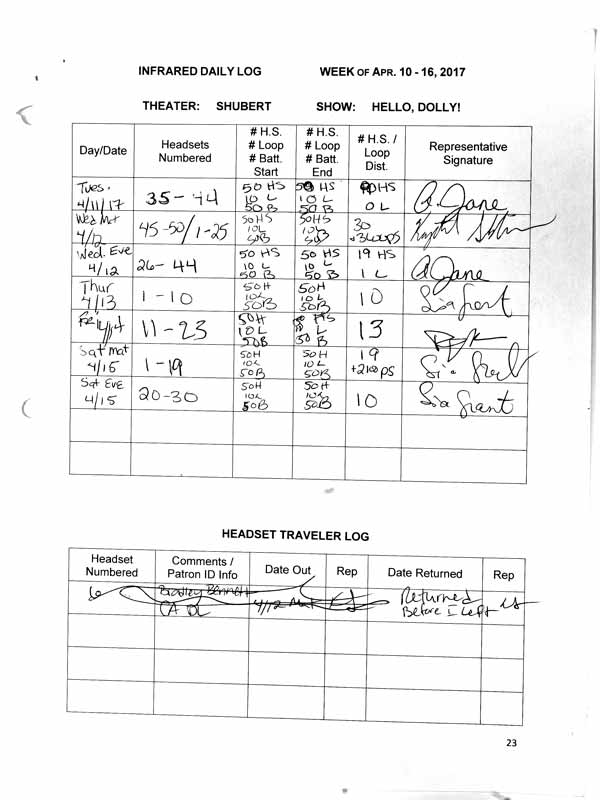 INFRARED DAILY LOG WEEK OF APR. 10 - 16, 2017
THEATER: SHUBERT SHOW: HELLO, DOLLY!
Day/Date Headsets Numbered # H.S. # Loop # Batt. Start # H.S. # Loop # Batt. End # H.S. / Loop Dist. Representative Signature
Tues. 4/11/17 35-44 50 HS 10 L 50 B 50 HS 10 L 50 B HS 0 L A. Jane
Wed Mat 4/12 45-50/1-25 50HS 10L 50B 50HS 10L 50B 30 +3Loops
Wed. Eve 4/12 26-44 50 HS 10 L 50 B 50 HS 10 L 50 B 19 HS 1 L A Jane
Thur 4/13 1-10 50H 10L 50B 50H 10L 50B 10 Lisa Grant
Fri 4/14 11-23 50H 10L 50B HS L 50 B 13
Sat mat 4/15 1-19 50H 10L 50B 50H 10L 50B 19 +2loops
Sat Eve 4/15 20-30 50H 10L 50B 50H 10L 50B 10 Lisa Grant
HEADSET TRAVELER LOG
Headset Numbered Comments / Patron ID Info Date Out Rep Date Returned Rep
6 Bradley Bennett CA DL 4/12 Mat Returned Before I Left
23